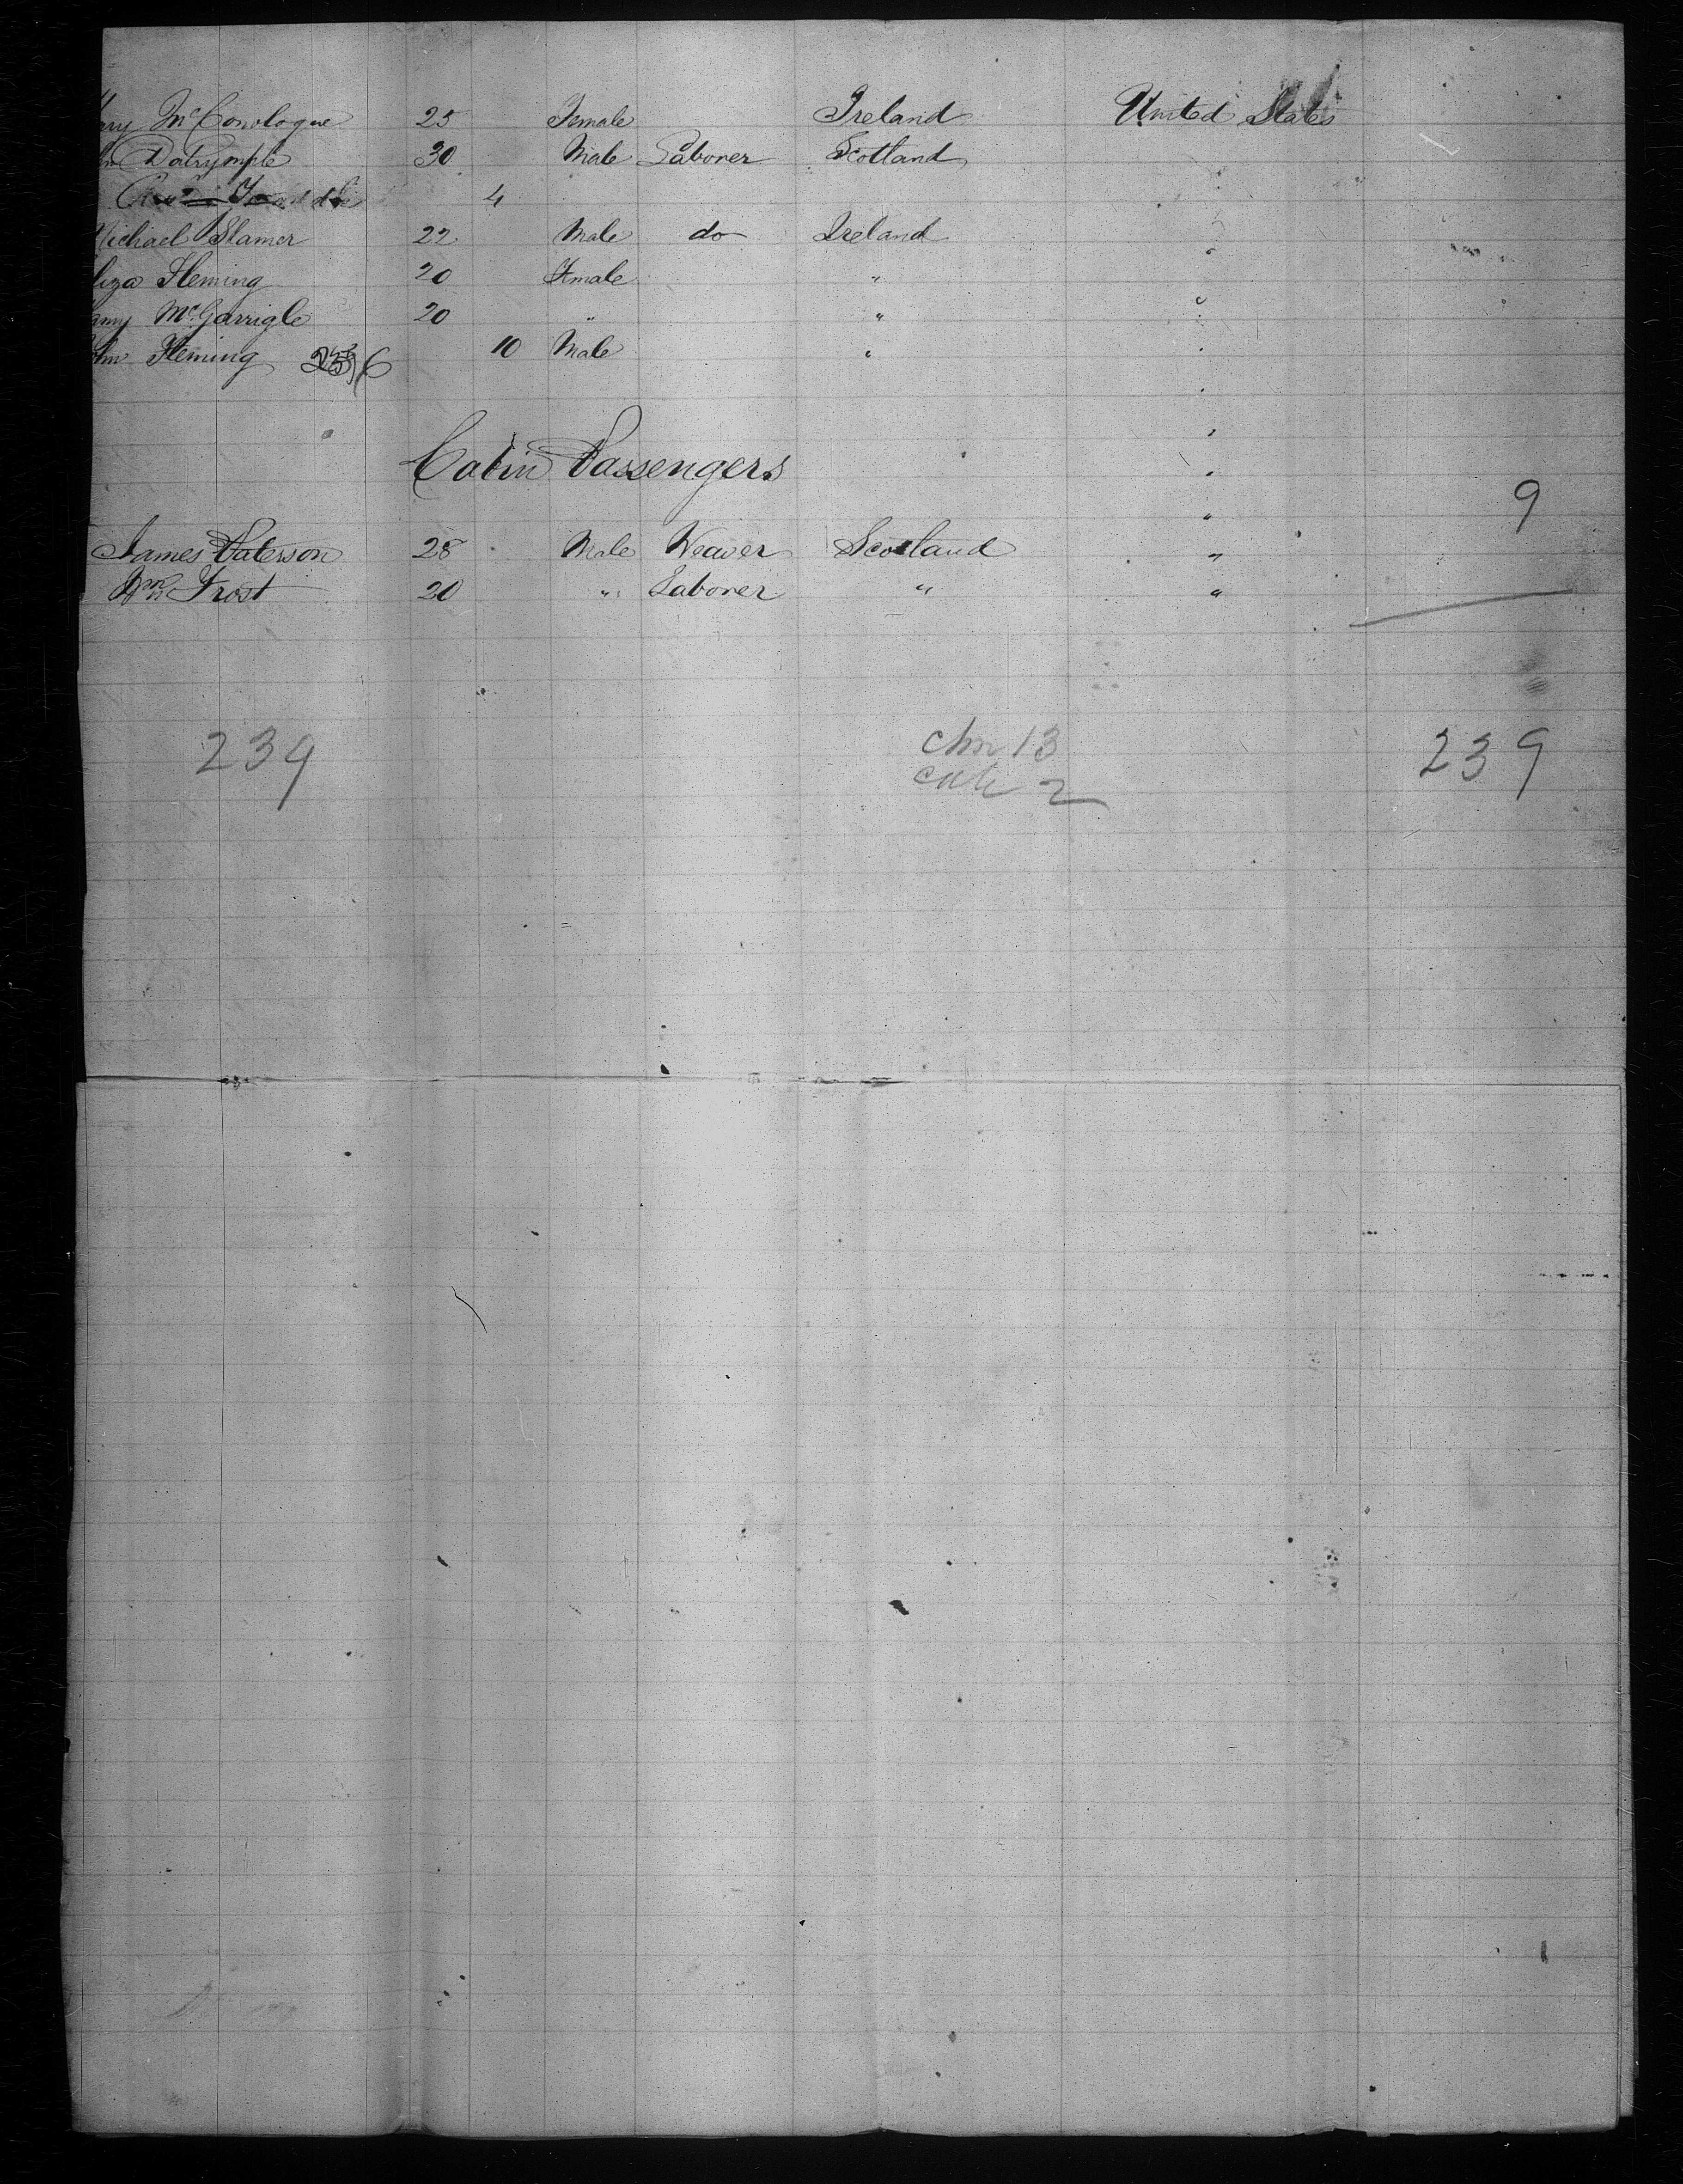 ary McConologue 25 Female Ireland United States
Dalrymple 30 Male Laborer Scotland "
4 "
Michael Slamer 22 Male do Ireland "
liza Fleming 20 Female " "
McGarrigle 20 " " "
hn Fleming 10 Male " "
Cabin Passengers
9
James Paterson 28 Male Weaver Scotland "
Wm Frost 20 " Laborer " "
239 chn 13 239
2